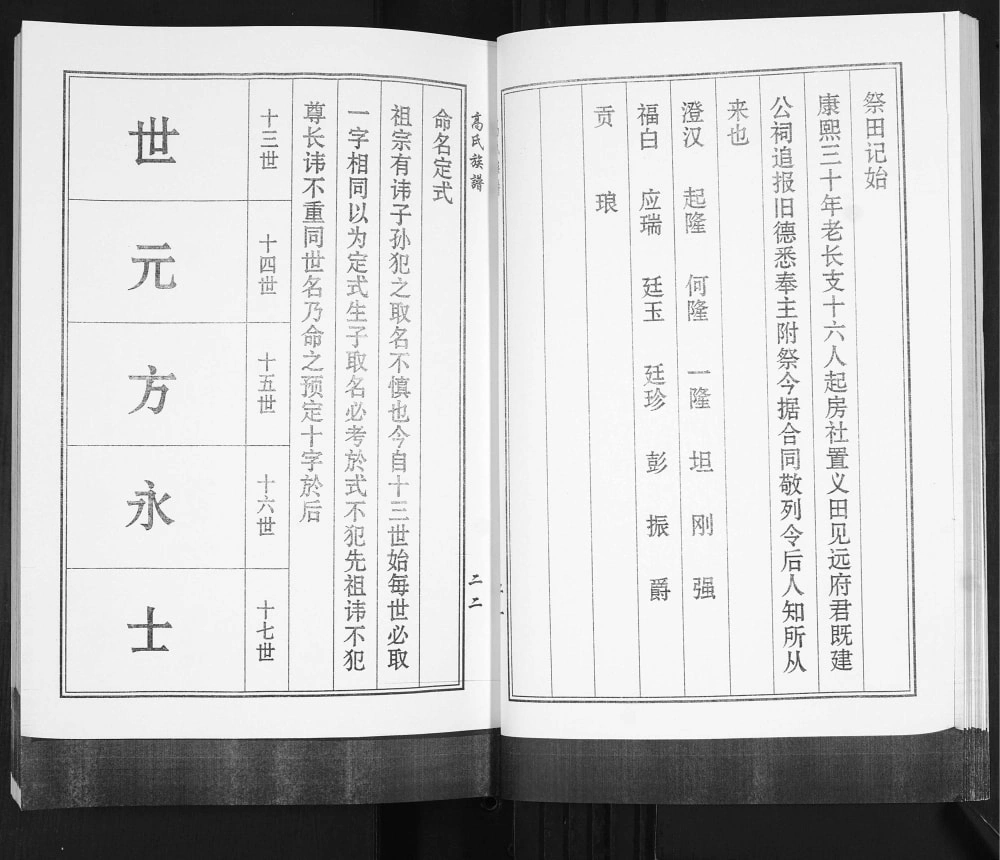 祭田记始
康熙三十年老长支十六人起房社置义田见远府君既建
公祠追报旧德悉奉主附祭今据合同敬列令后人知所从
来也
澄汉 起隆 何隆 一隆 坦 刚 强
福白 应瑞 廷玉 廷珍 彭 振 爵
贡 琅
高氏族譜
二二
命名定式
祖宗有讳子孙犯之取名不慎也今自十三世始每世必取
一字相同以为定式生子取名必考於式不犯先祖讳不犯
尊长讳不重同世名乃命之预定十字於后
十三世 世
十四世 元
十五世 方
十六世 永
十七世 士